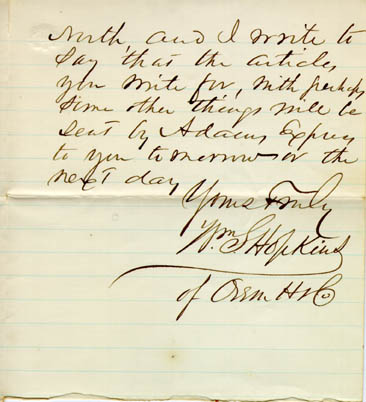 North and I write to
say that the articles
you write for, with perhaps
some other things will be
sent by Adams Express
to you tomorrow or the
next day
Yours Truly
Wm S Hopkins
of Orsm H & Co